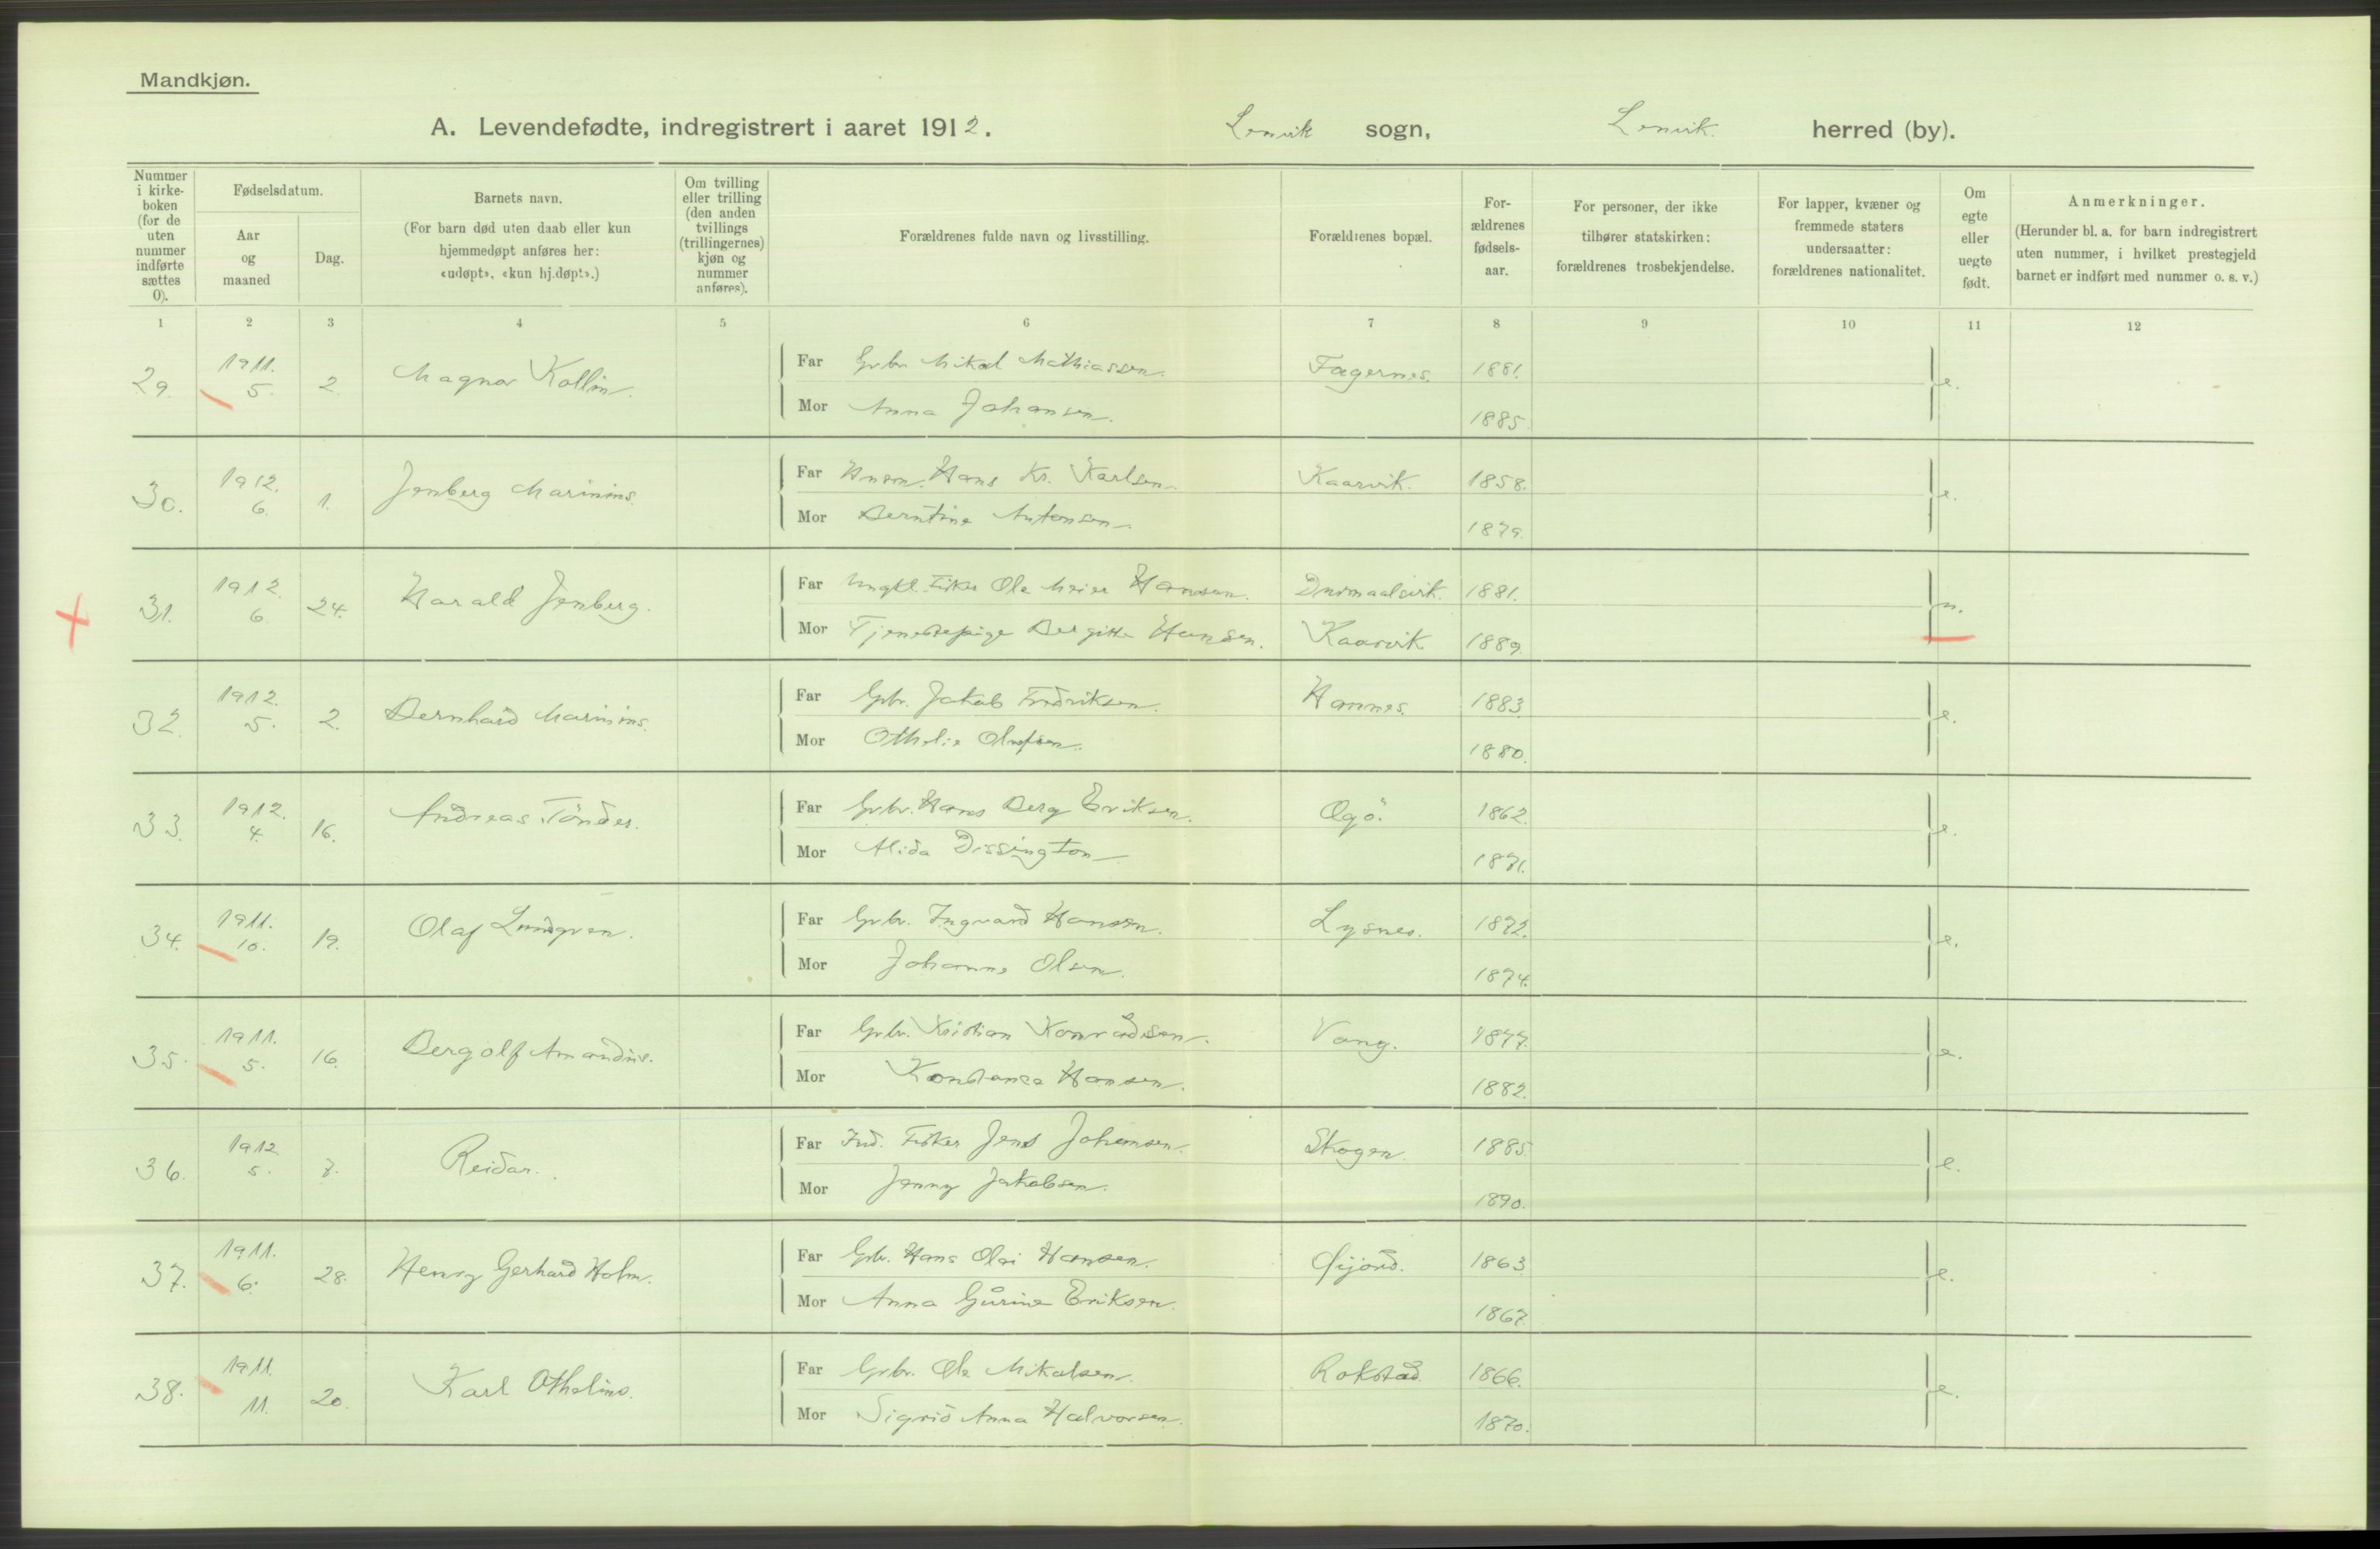 Mandkjøn.
A. Levendefødte, indregistrert i aaret 1912. Lenvik sogn, Lenvik. herred (by).
Nummer i kirke-boken (for de uten nummer indførte sættes 0).
Fødselsdatum.
Aar og maaned
Dag.
Barnets navn.
(For barn død uten daab eller kun hjemmedøpt anføres her: «udøpt», «kun hj.døpt».)
Om tvilling eller trilling (den anden tvillings (trillingernes) kjøn og nummer anføres).
Forældrenes fulde navn og livsstilling.
Forældrenes bopæl.
For-ældrenes fødsels-aar.
For personer, der ikke tilhører statskirken: forældrenes trosbekjendelse.
For lapper, kvæner og fremmede staters undersaatter: forældrenes nationalitet.
Om egte eller uegte født.
Anmerkninger.
(Herunder bl. a. for barn indregistrert uten nummer, i hvilket prestegjeld barnet er indført med nummer o. s. v.)
1 2 3 4 5 6 7 8 9 10 11 12
29. 1911. 5. 2. Magnor Kollin. Far Grbr. Mikal Mathiassen. Fagernes. 1881. e.
Mor Anna Johansen. 1885.
30. 1912. 6. 1. Jenberg Marinius. Far Husm. Hans Kr. Karlsen. Kaarvik. 1858. e.
Mor Berntine Antonsen 1879.
31. 1912. 6. 24. Harald Jenberg. Far Ungkl. Fisker Ole Meier Hansen. Durmaalsvik. 1881. u.
Mor Tjenestepige Bergitte Hansen. Kaarvik 1889.
32. 1912. 5. 2. Bernhard Marinius. Far Gbr. Jakob Fredriksen. Hannes. 1883. e.
Mor Othelie Olufsen. 1880.
33. 1912. 4. 16. Andreas Tönder. Far Grbr. Hans Berg Eriksen. 1862. e.
Mor Alida Dissington 1871.
34. 1911. 10. 19. Olaf Lundgren. Far Grbr. Ingvard Hansen. Lysnes. 1872. e.
Mor Johanne Olsen. 1874.
35. 1911. 5. 16. Bergolf Amandus. Far Grbr. Kristian Konradsen. Vang. 1877. e.
Mor Konstanse Hansen. 1882.
36. 1912 5. 7. Reidar. Far Ind. Fisker Jens Johansen. Skogen. 1885. e.
Mor Jenny Jakobsen. 1890.
37. 1911. 6. 28. Henry Gerhard Holm. Far Grbr. Hans Olai Hansen. Gijörd. 1863. e.
Mor Anna Gurine Eriksen. 1867.
38. 1911. 11. 20. Karl Othelius. Far Grbr. Ole Mikalsen. Rokstad. 1866. e.
Mor Sigrid Anna Halvorsen. 1870.